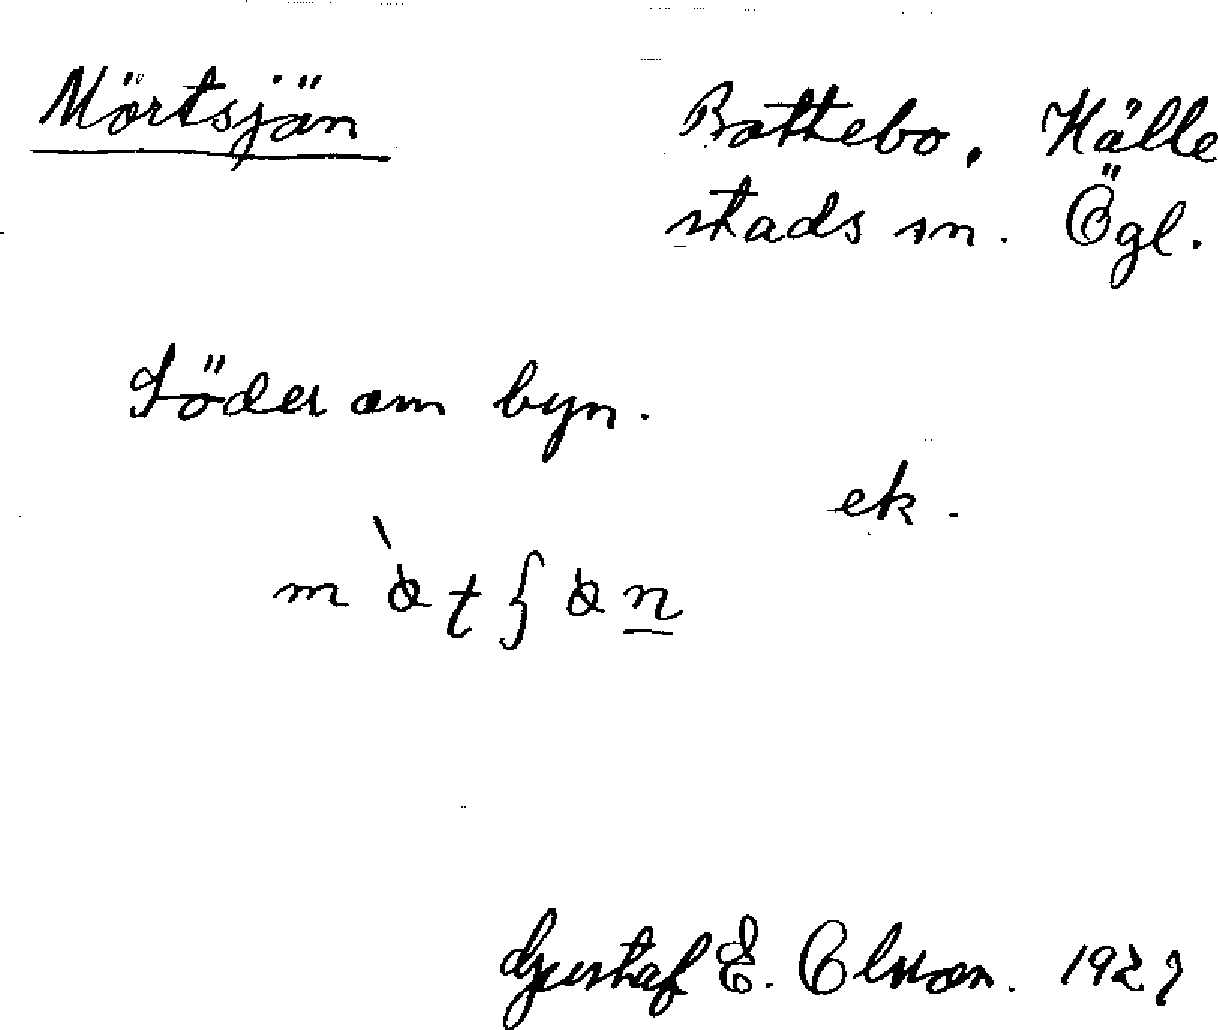 Mörtsjön
Bottebo, Hälle
stads sn. Ögl.
Söder om byn.
ek.
Gustaf E. Olsson. 1927